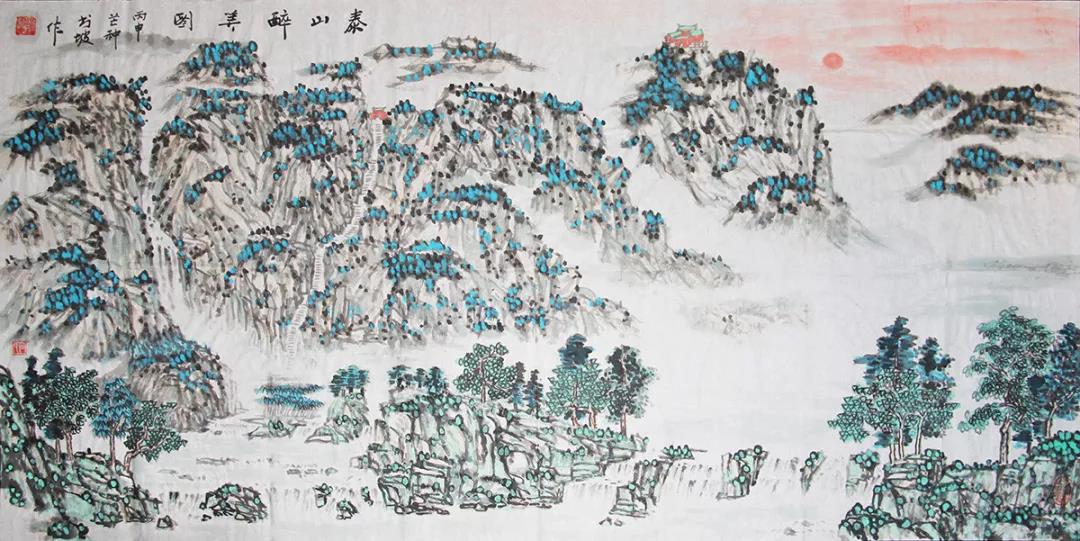 泰山醉美图
丙申
芒种
作